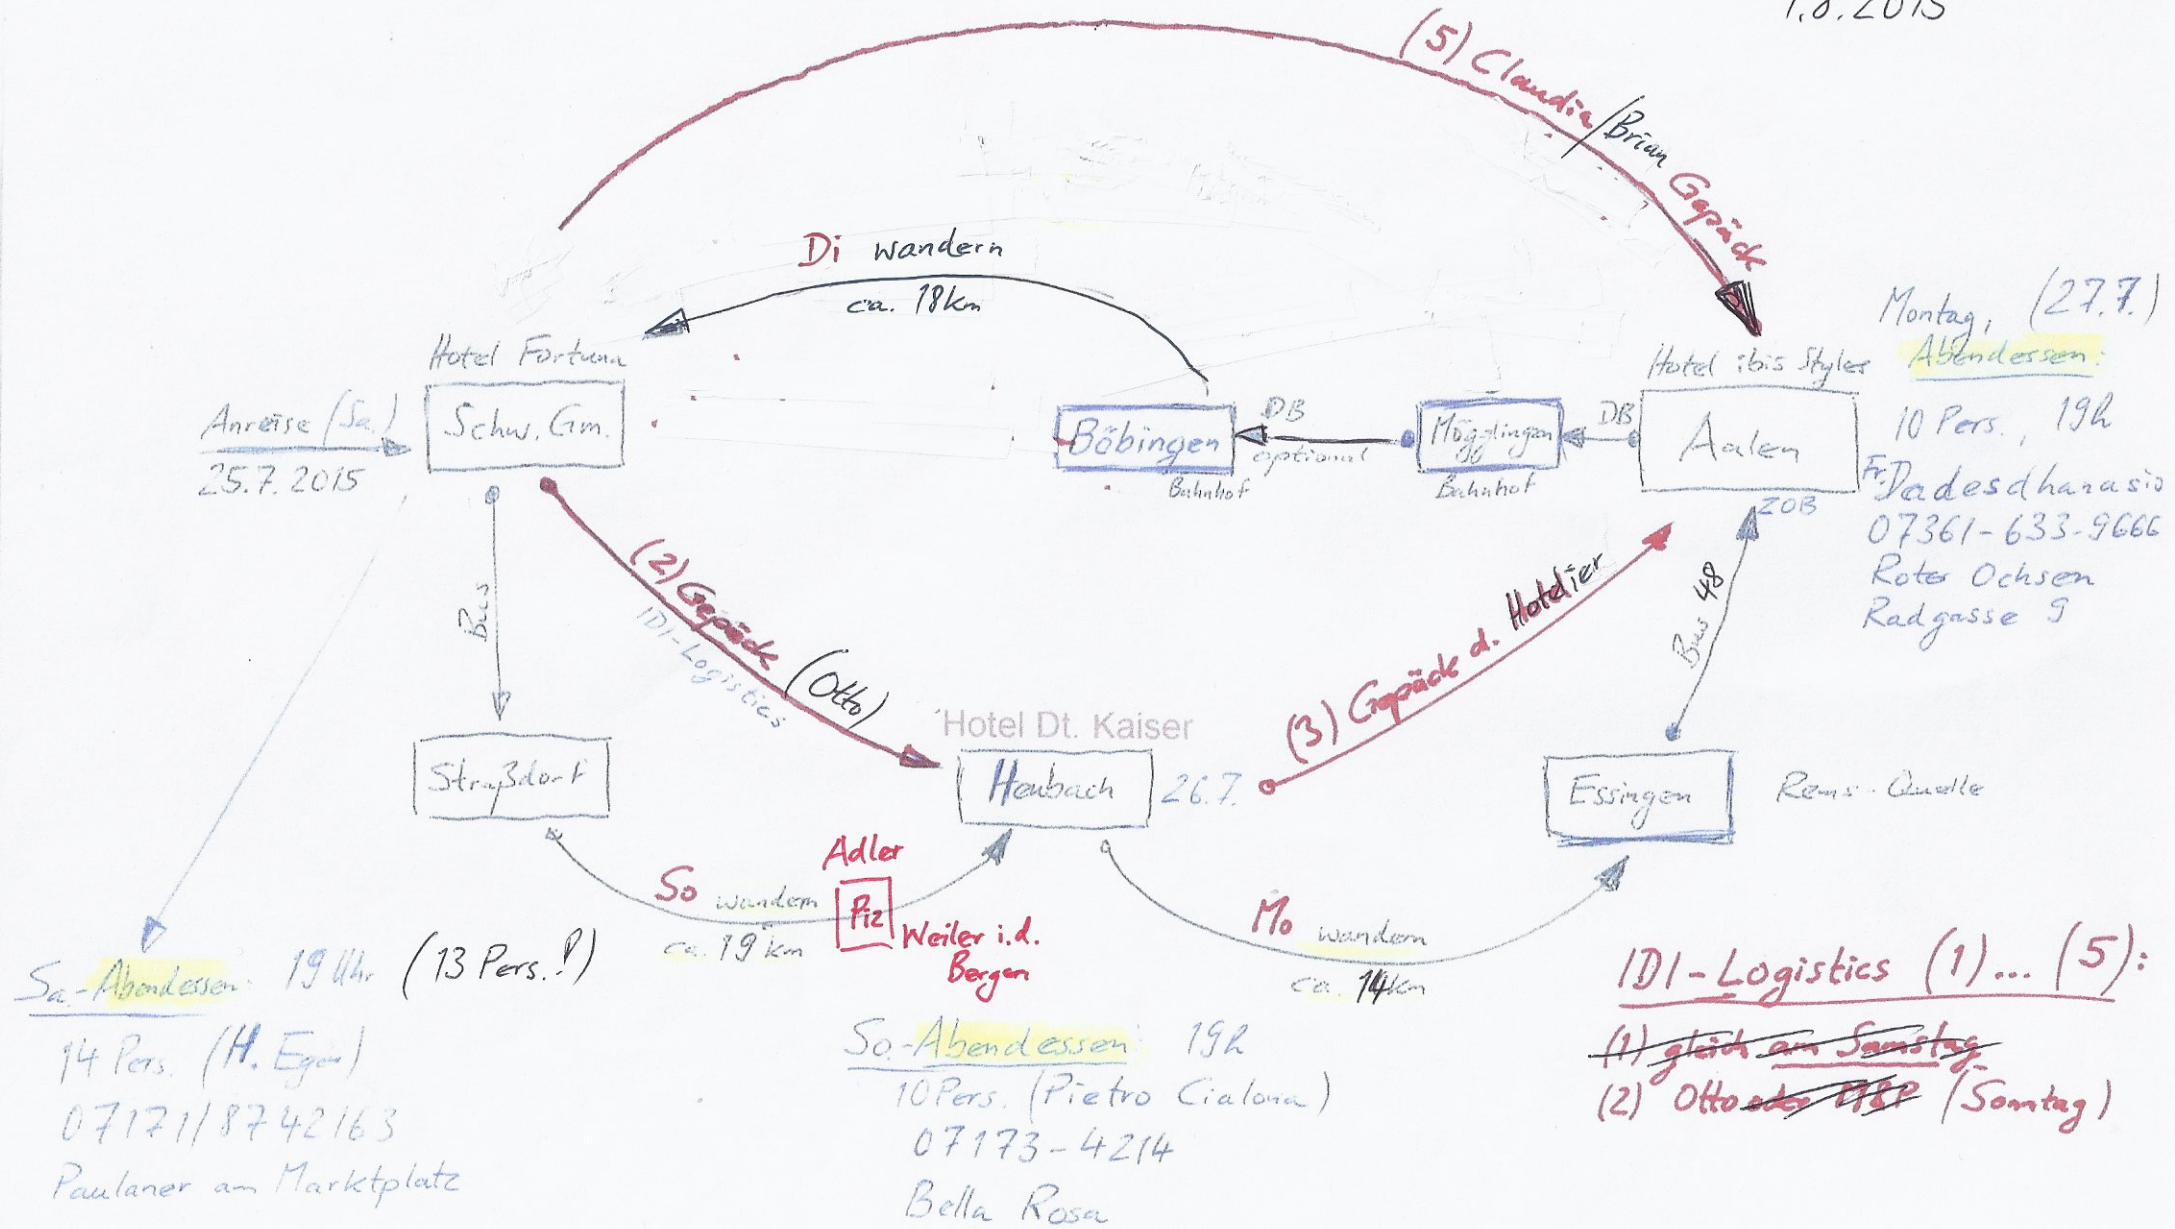 1.8.2015
(5) Claudia/Brian Gepäck
Di wandern
ca. 18km
Hotel Fortuna
Schw. Gm.
Anreise (Sa.)
25.7.2015
Böbingen
Bahnhof
DB
optional
Mögglingen
Bahnhof
DB
Hotel ibis Styles
Aalen
ZOB
Montag, (27.7.)
Abendessen:
10 Pers., 19h
Fr. Dadesdhanasio
07361-633-9666
Roter Ochsen
Radgasse 9
Bus
(2) Gepäck (Otto)
IDI-Logistics
(3) Gepäck d. Hotelier
Bus 48
Hotel Dt. Kaiser
Straßdorf
Heubach
26.7.
Essingen
Rems-Quelle
So wandern
ca. 19km
Adler
Piz
Weiler i.d.
Bergen
Mo wandern
ca. 14km
Sa.-Abendessen: 19 Uhr (13 Pers.!)
14 Pers. (H. Eger)
07171/8742163
Paulaner am Marktplatz
So.-Abendessen: 19h
10 Pers. (Pietro Cialona)
07173-4214
Bella Rosa
IDI-Logistics (1)... (5):
(1) gleich am Samstag
(2) Otto oder M&P (Sonntag)